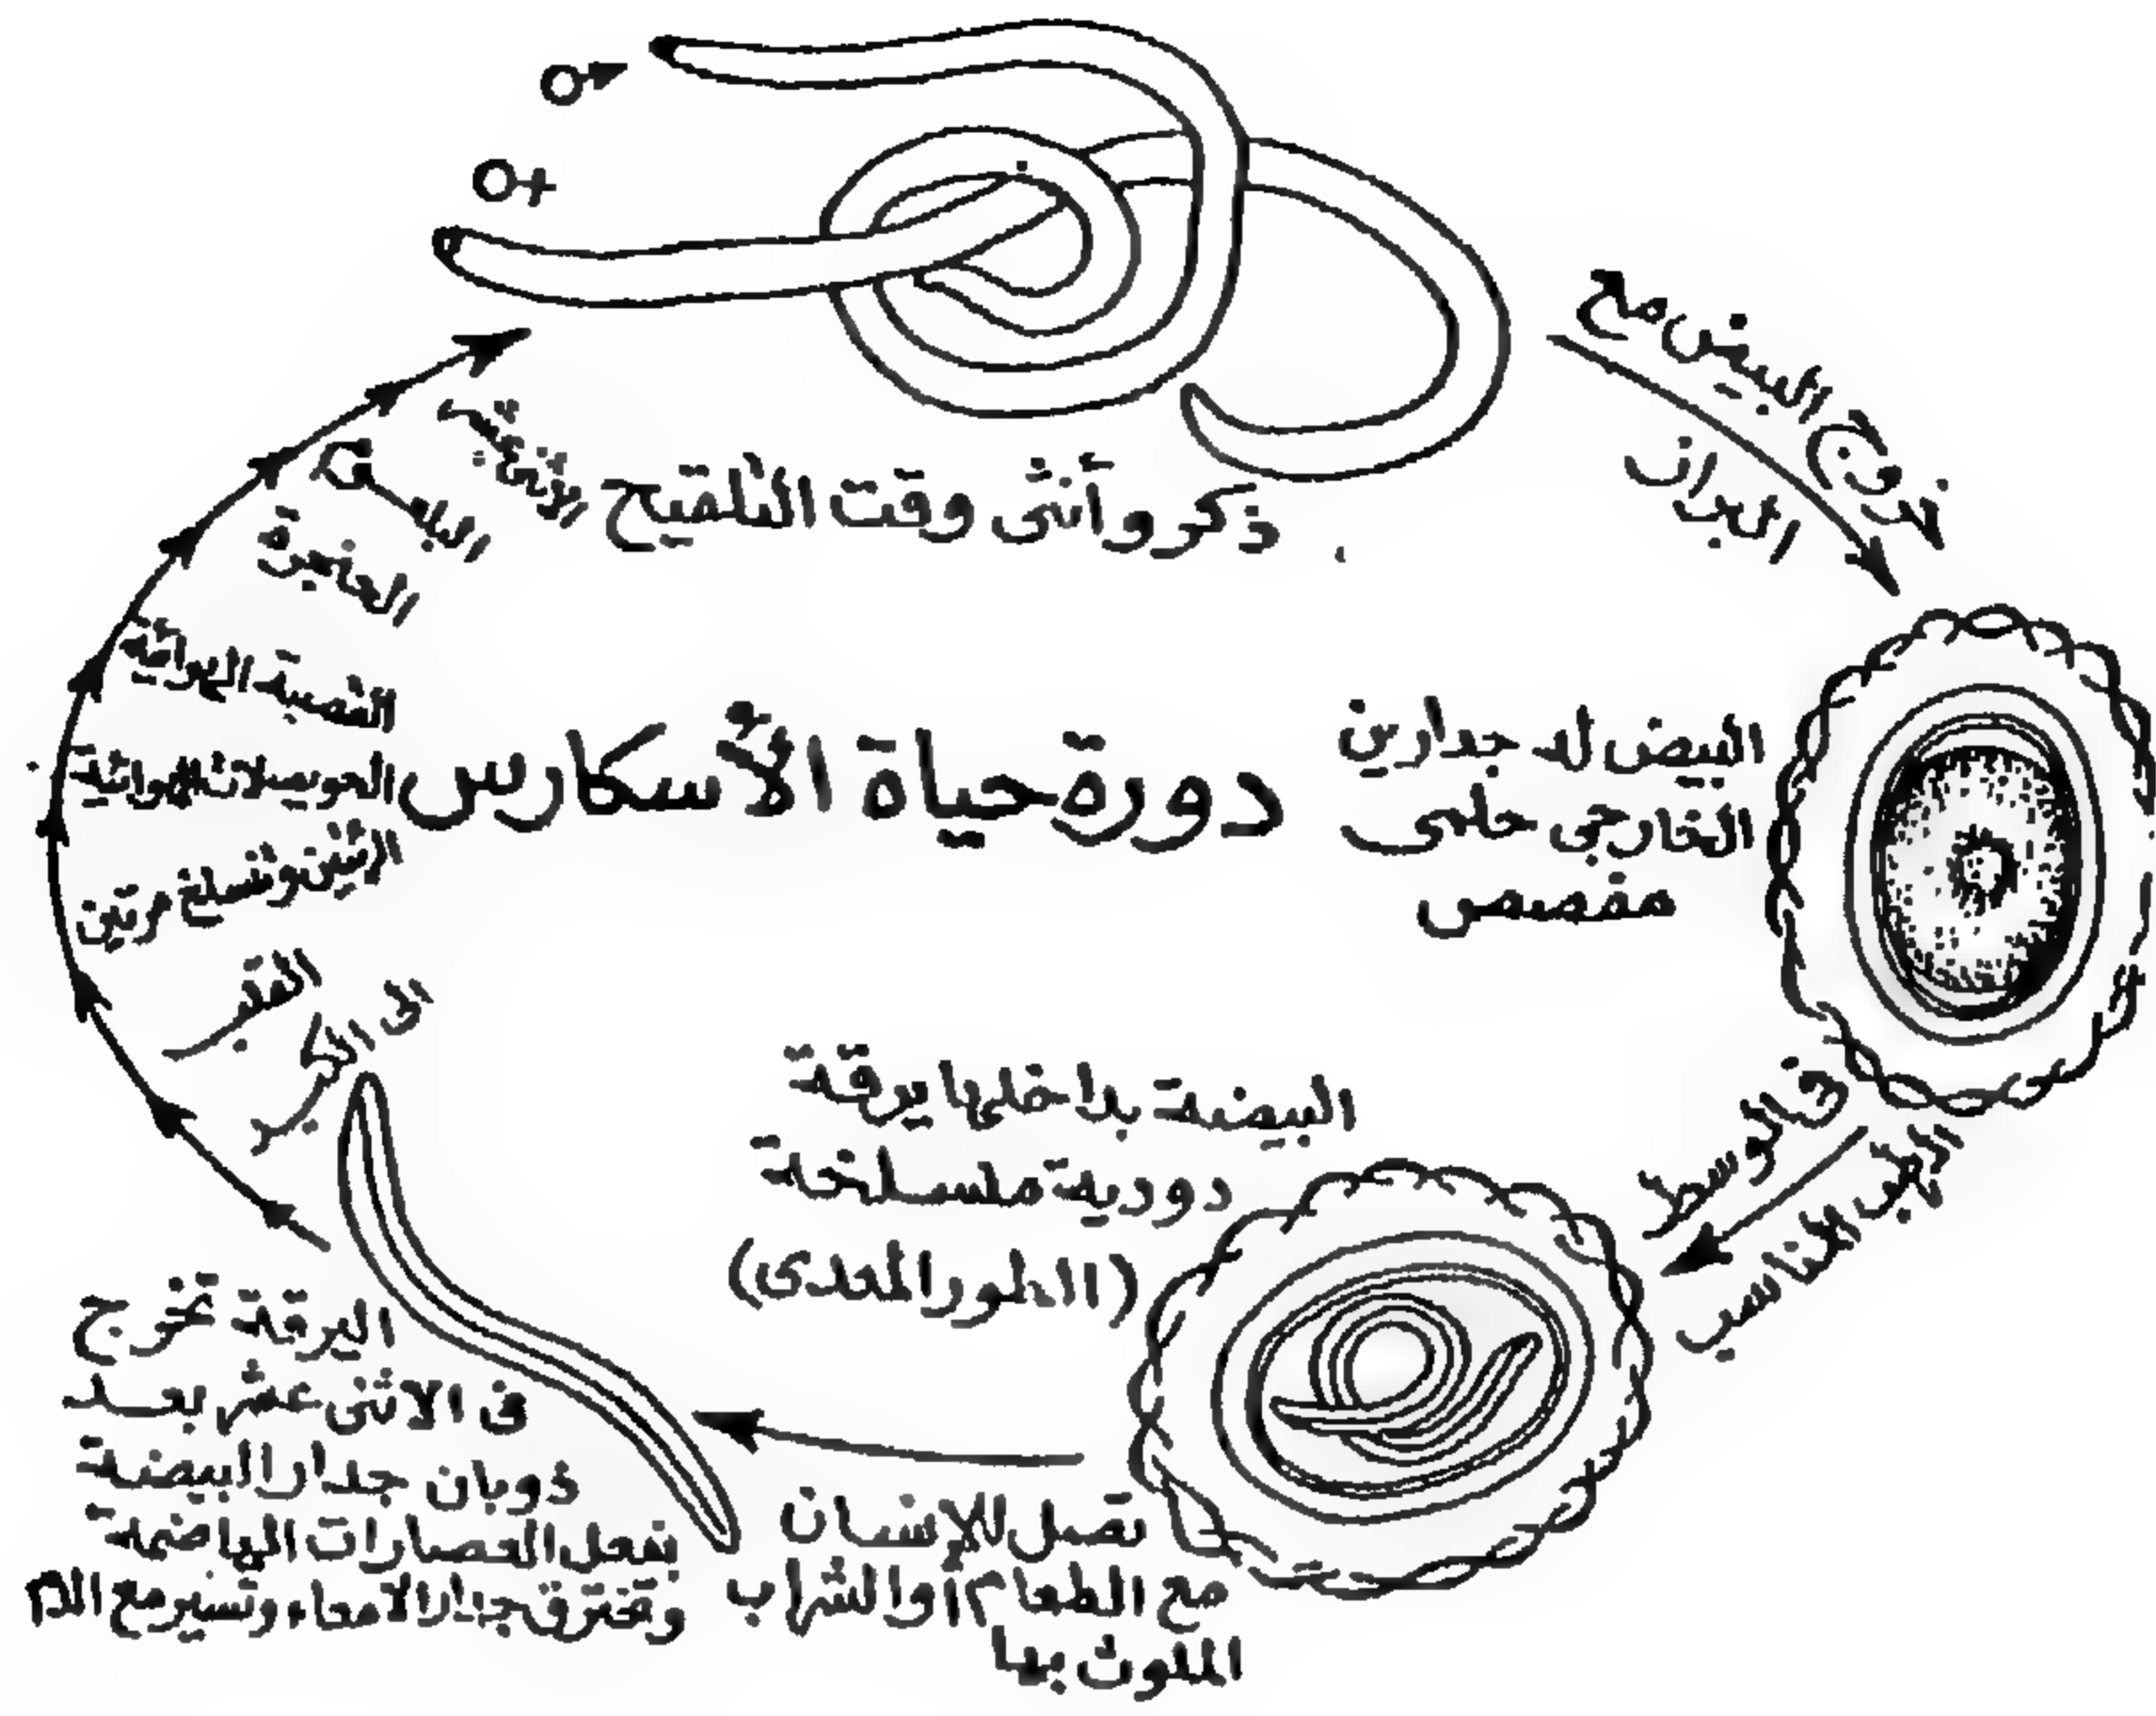 ذكر وأنثى وقت التلقيح
خروج البيض مع
البراز
البيض له جدارين
الخارجى حلمى
مقصص
فى الوسط
المناسب
البيضة بداخلها يرقة
دودية منسلخة
(الطور المعدى)
تصل للإنسان
مع الطعام أو الشراب
الملوث بها
اليرقة تخرج
فى الاثنى عشر بعد
ذوبان جدار البيضة
بفعل العصارات الهاضمة
وتخترق جدار الامعاء وتسير مع الدم
الى الكبد
القلب
الرئتين وتنسلخ مرتين
الحويصلات الهوائية
القصبة الهوائية
الحنجرة
البلعوم
دورة حياة الأسكارس